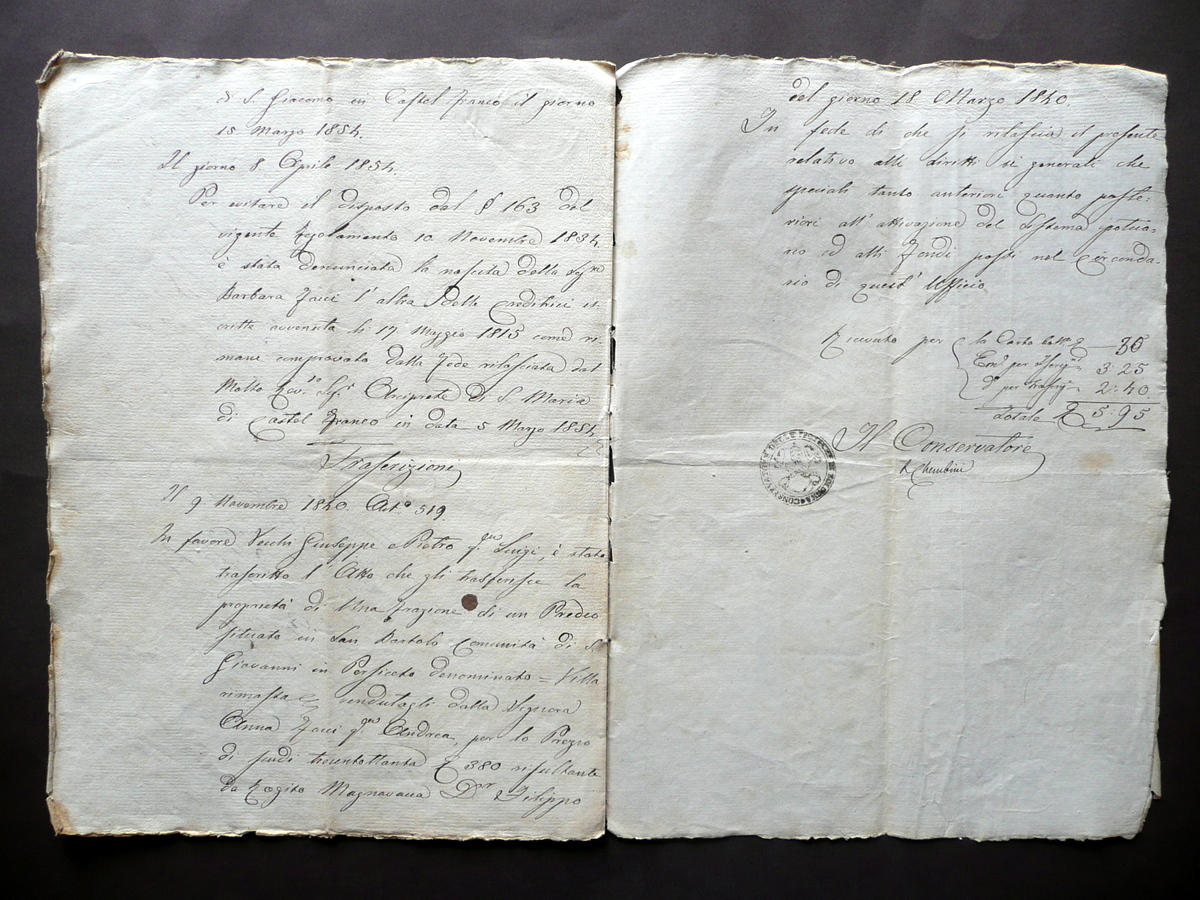 di S. Giacomo in Castel Franco il giorno
15 Marzo 1854.
Il giorno 8 Aprile 1854.
Per evitare il disposto dal § 163 del
vigente Regolamento 10 Novembre 1834.
è stata denunciata la nascita della Sigra
Barbara l'altra delle Creditrici is
critte avvenuta li 17 Maggio 1815 come ri
mane comprovato dalla Fede rilasciata dal
Molto Revdo Sigr Arciprete di S. Maria
di Castel Franco in data 5 Marzo 1854.
Trascrizioni
Il 9 Novembre 1840. Arto 519
In favore Vecchi Giuseppe e Pietro qm Luigi, è stato
trascritto l'Atto che gli trasferisce la
proprietà di Una frazione di un Predio
situato in San Bartolo Comunità di S.
Giovanni in Persiceto denominato = Villa
rimasta = vendutagli dalla Signora
Anna qm Andrea, per lo Prezzo
di scudi trecentottanta 380 risultante
da Rogito Magnavacca Dr Filippo
del giorno 18 Marzo 1840.
In fede di che si rilascia il presente
relativo alli diritti sì generali che
speciali tanto anteriori quanto poste:
riori all'attivazione del Sistema ipoteca=
rio ed alli Fondi posti nel Circonda=
rio di quest'Uffizio.
Ricevuto per la Carta 30
per 3. 25
per 2. 40
Totale 5. 95
Il Conservatore
Cherubini